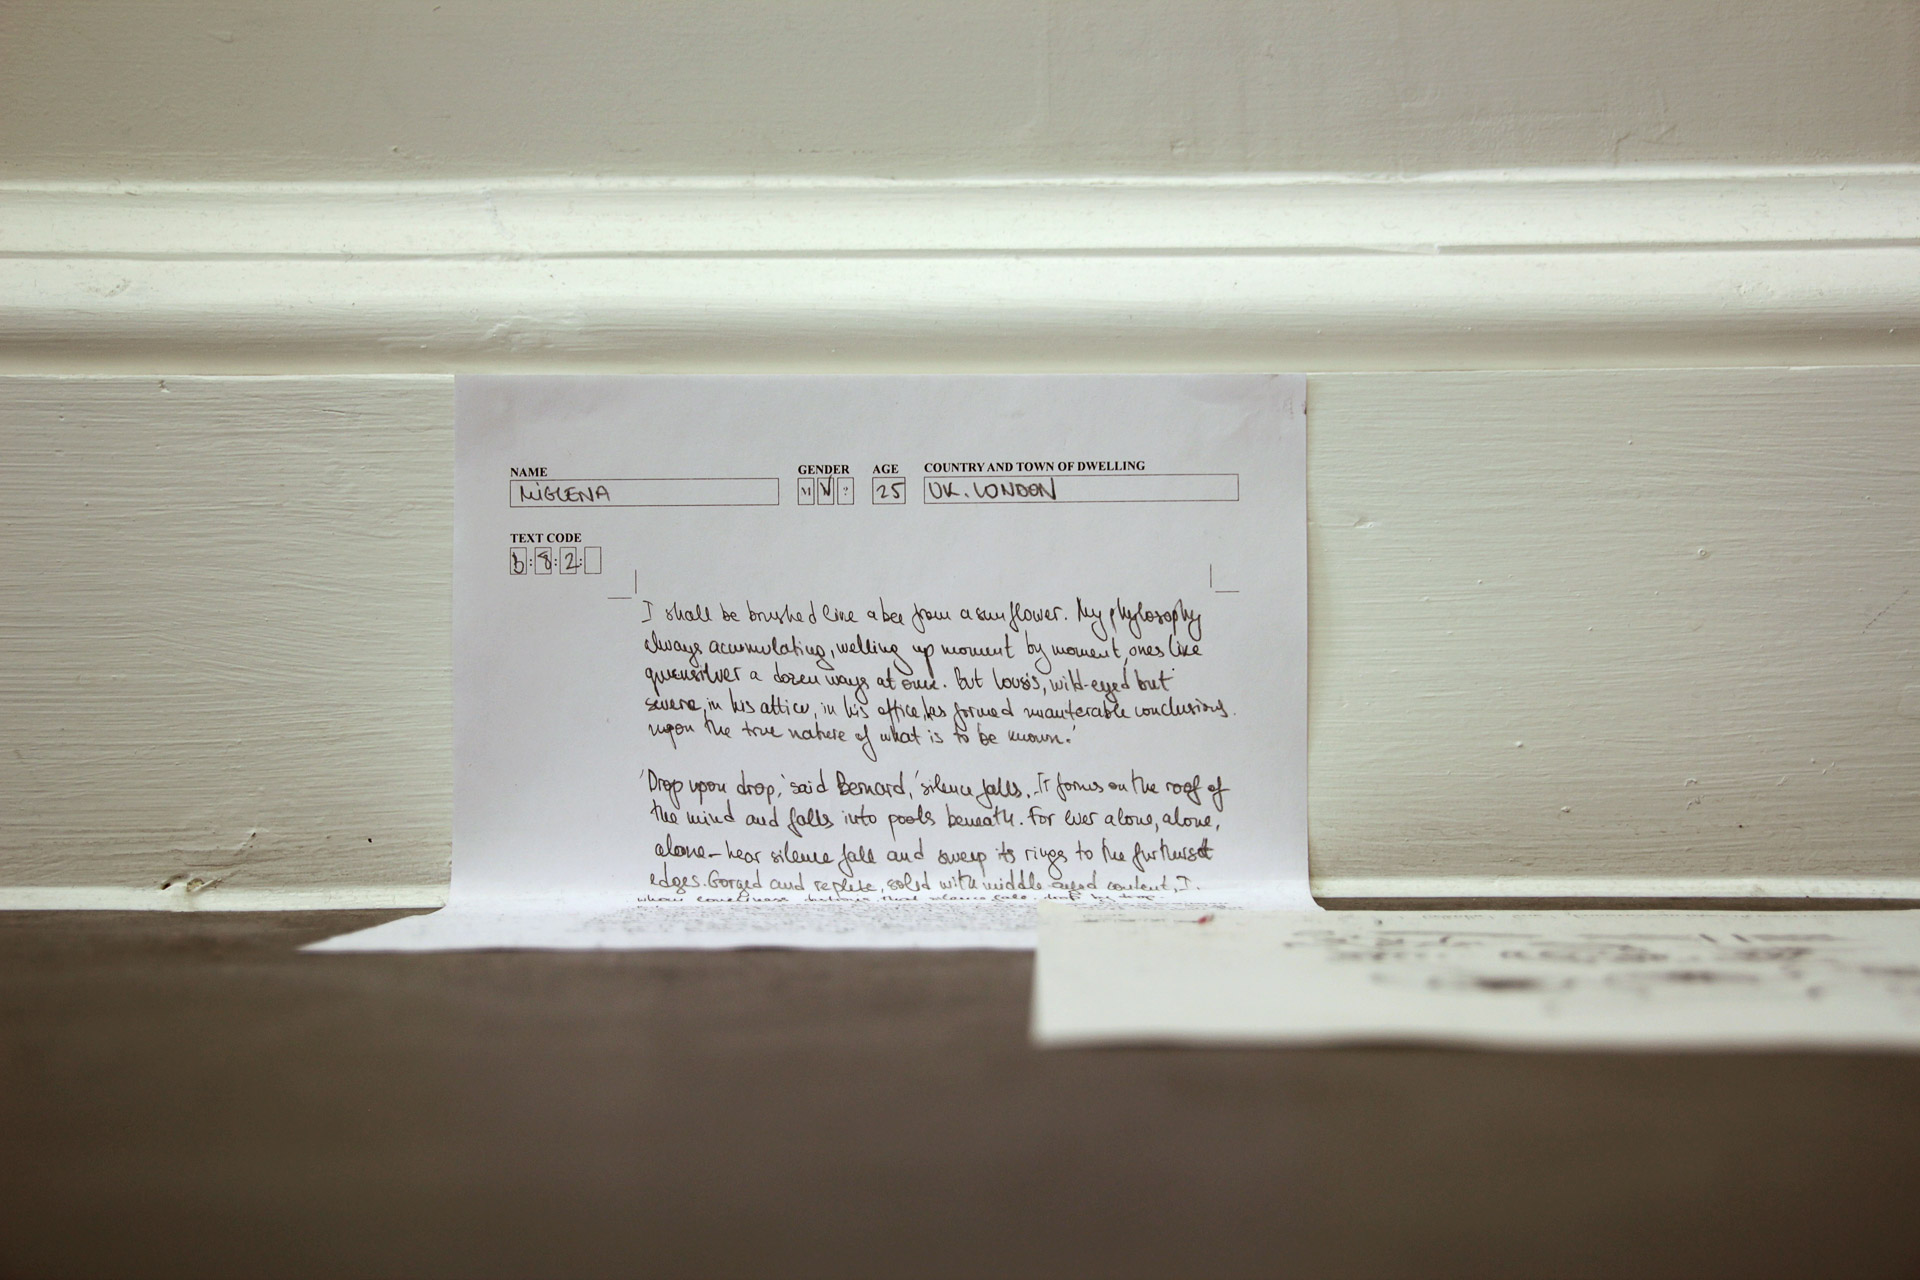 NAME GENDER AGE COUNTRY AND TOWN OF DWELLING
MIGLENA M ? 25 UK. LONDON
TEXT CODE
b:8:2:
I shall be brushed like a bee from a sunflower. My phylosophy
always accumulating, welling up moment by moment, ones like
quicksilver a dozen ways at once. But Louis, wild-eyed but
severe, in his attic, in his office, has formed unalterable conclusions.
upon the true nature of what is to be known.'
'Drop upon drop,' said Bernard, 'silence falls. It forms on the roof of
the mind and falls into pools beneath. For ever alone, alone,
alone – hear silence fall and sweep its rings to the furthest
edges. Gorged and replete, solid with middle aged content, I.
whom loneliness destroys, that silence fall, drop by drop.